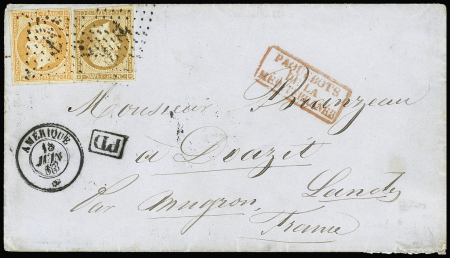 PAQUEBOTS
DE LA
MÉDITERRANÉE
Monsieur
AMÉRIQUE
18
JUIN
PD
à Doazit
Landes
Par Mugron
France